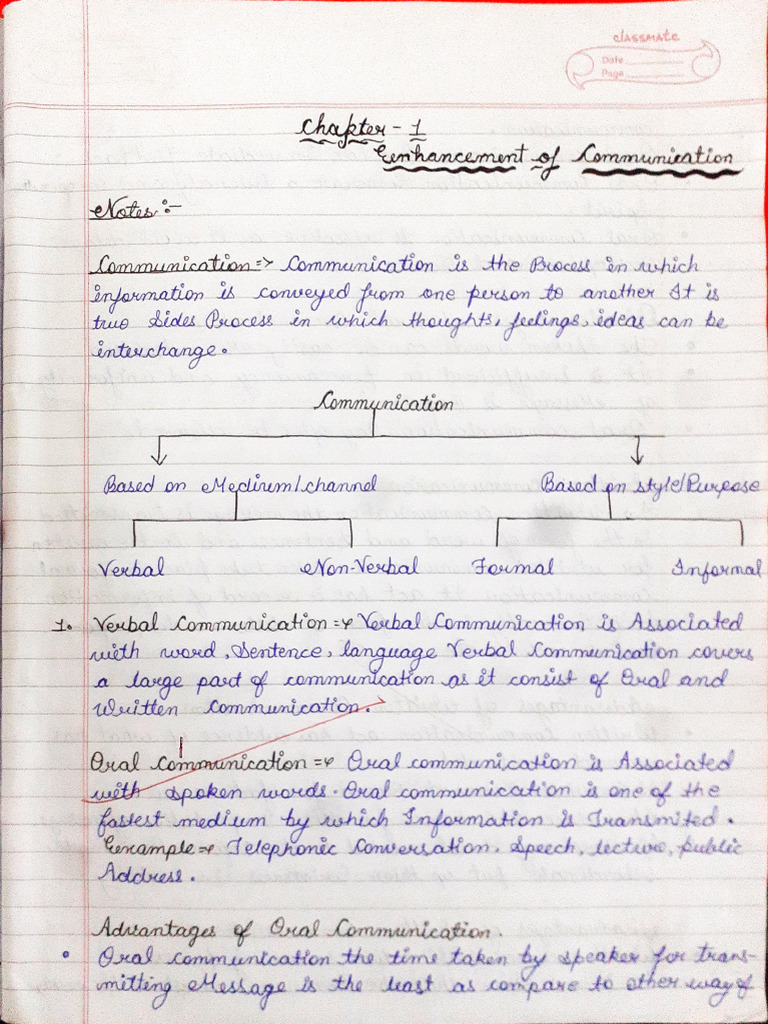 classmate
Date
Page
Chapter - 1
Enhancement of Communication
Notes :-
Communication => Communication is the Process in which
information is conveyed from one person to another It is
two Sides Process in which thoughts, feelings, ideas can be
interchange.
Communication
Based on Medium/channel Based on style/Purpose
Verbal Non-Verbal Formal Informal
1. Verbal Communication => Verbal Communication is Associated
with word, Sentence, language Verbal Communication covers
a large part of communication as it consist of Oral and
Written Communication.
Oral Communication => Oral communication is Associated
with spoken words. Oral communication is one of the
fastest medium by which Information is Transmited.
Example => Telephonic Conversation, Speech, lecture, public
Address.
Advantages of Oral Communication.
• Oral communication the time taken by speaker for trans-
mitting Message is the least as compare to other way of